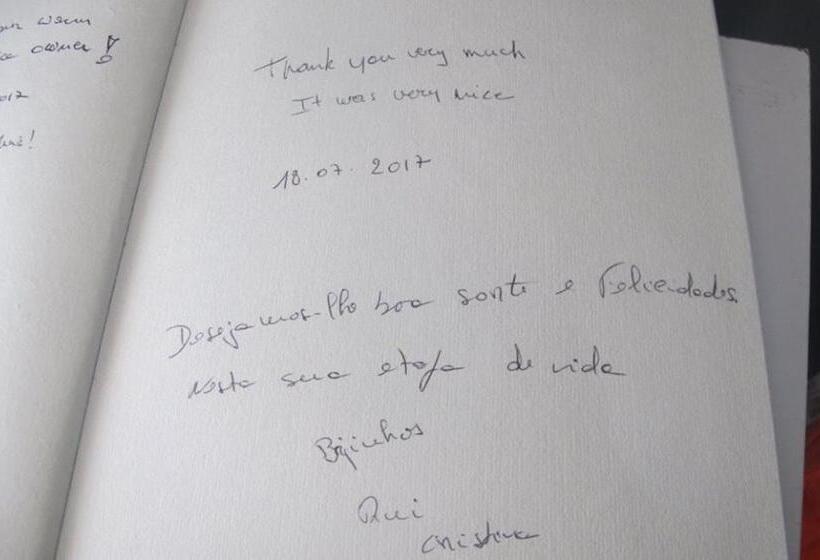 owner!
Thank you very much
It was very nice
18.07.2017
Desejamos-lhe boa sorte e Felicidades
nesta sua etapa de vida
Bijinhos
Qui
Cristina